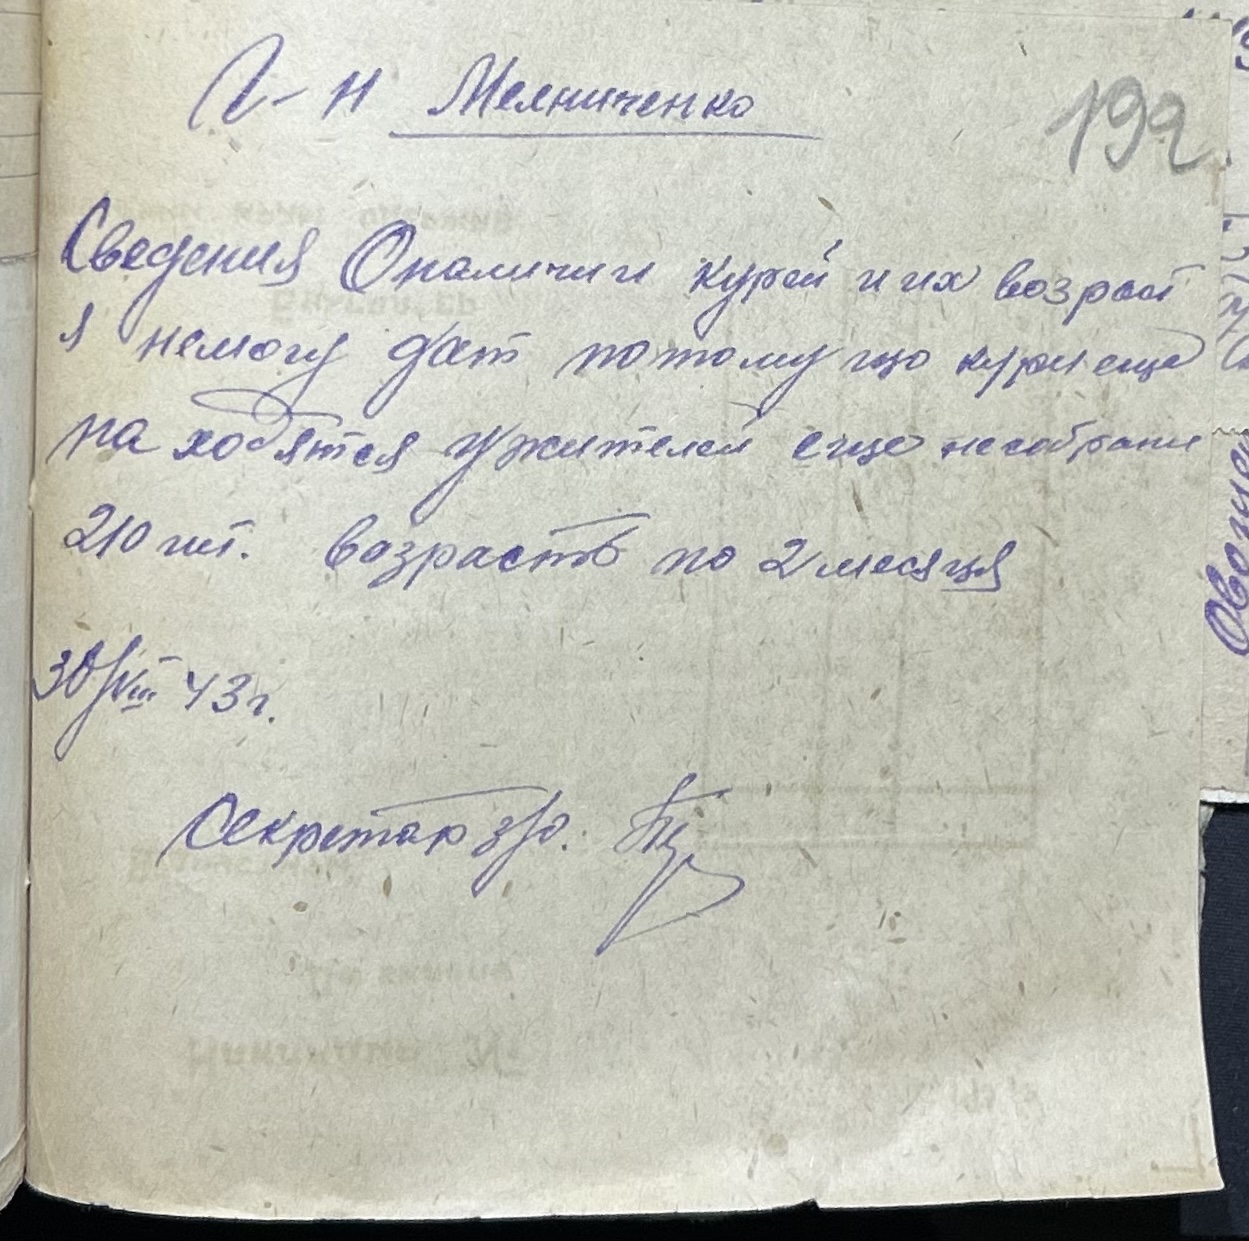 Г-н Мелниченко
192
Сведения О наличии курей и их возраст
я немогу дат потому що кури еще
находятся ужителей еще несобрани
210 шт. возрасть по 2 месяця
30/VIII 43 г.
Секретар з/о.